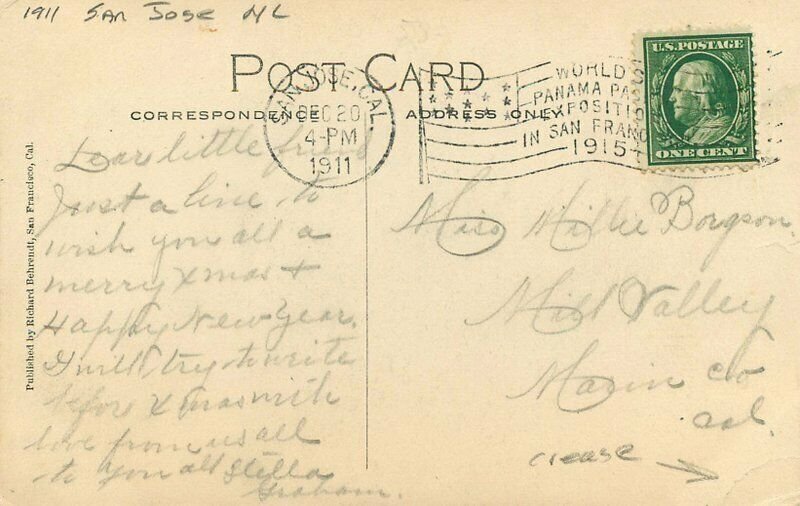 1911 San Jose ML
POST CARD
CORRESPONDENCE
ADDRESS ONLY
SAN JOSE, CAL.
DEC 20
4-PM
1911
WORLD'S
PANAMA PA
EXPOSITIO
IN SAN FRANC
1915
U.S. POSTAGE
ONE CENT
Published by Richard Behrendt, San Francisco, Cal.
Dear little friend
Just a line to
wish you all a
merry Xmas +
Happy New Year.
I will try to write
before Xmas with
love from us all
to you all Stella
Graham.
Miss Millie Borgson
Mill Valley
Marin Co
Cal.
crease